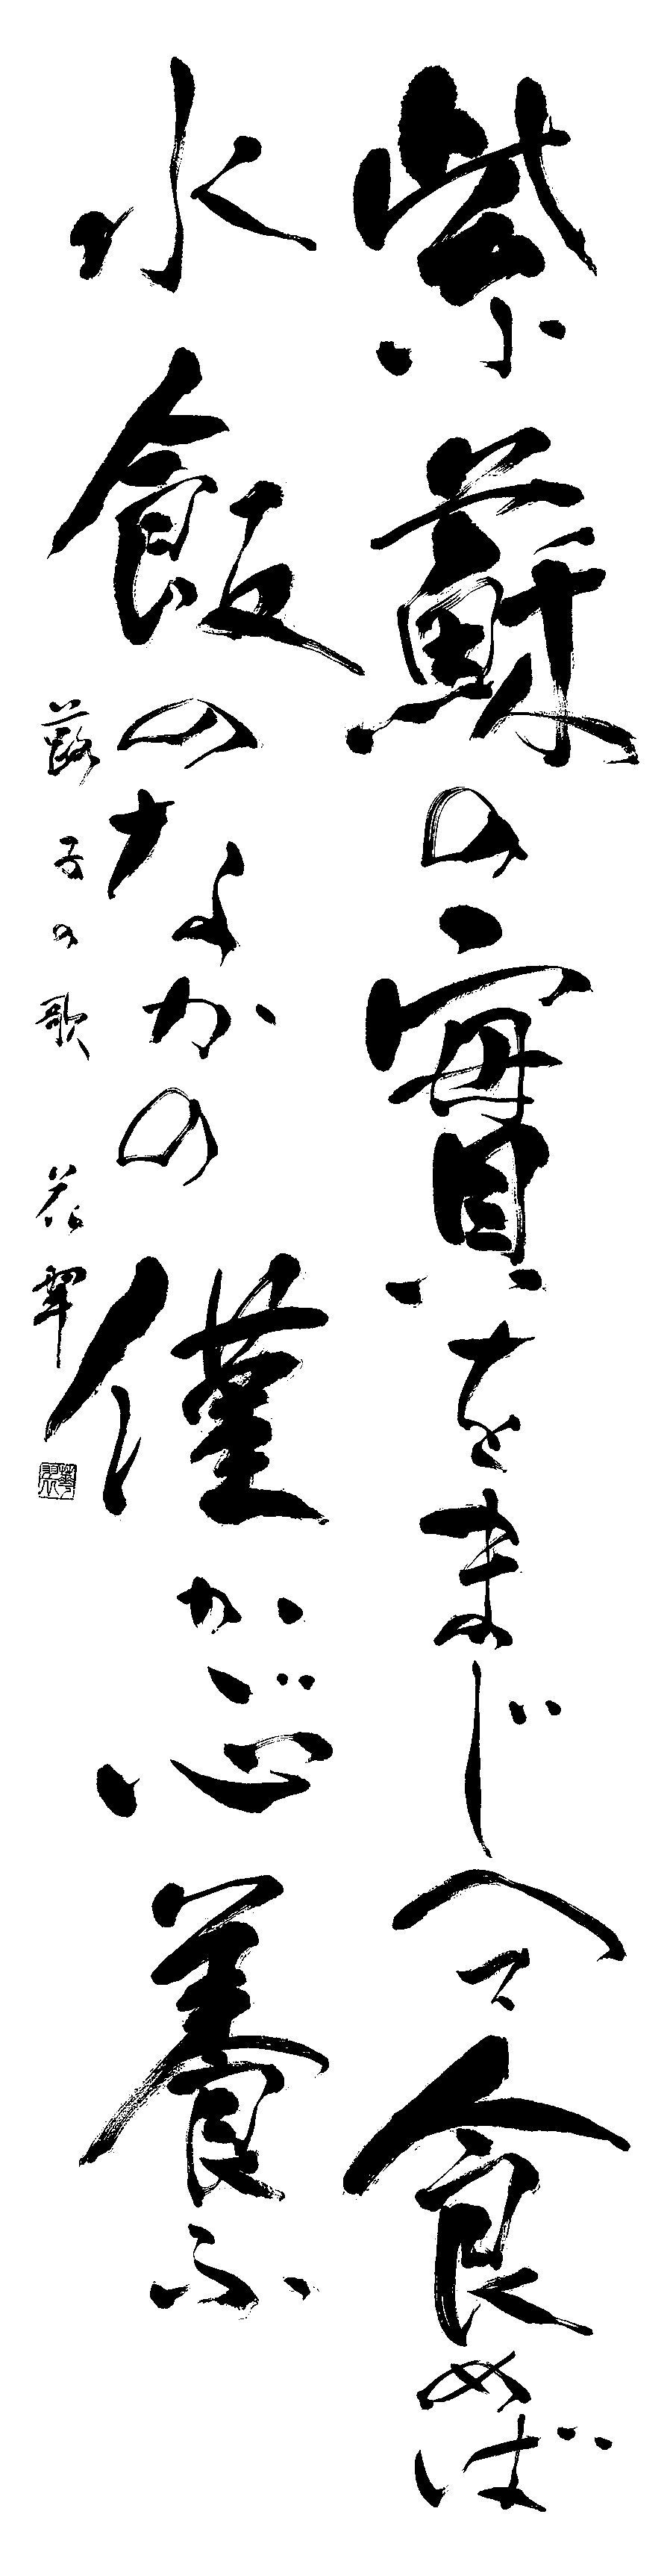 紫蘇の實をまじへて食めば
水飯のなかの僅かが心養ふ
蕗子の歌 花翠